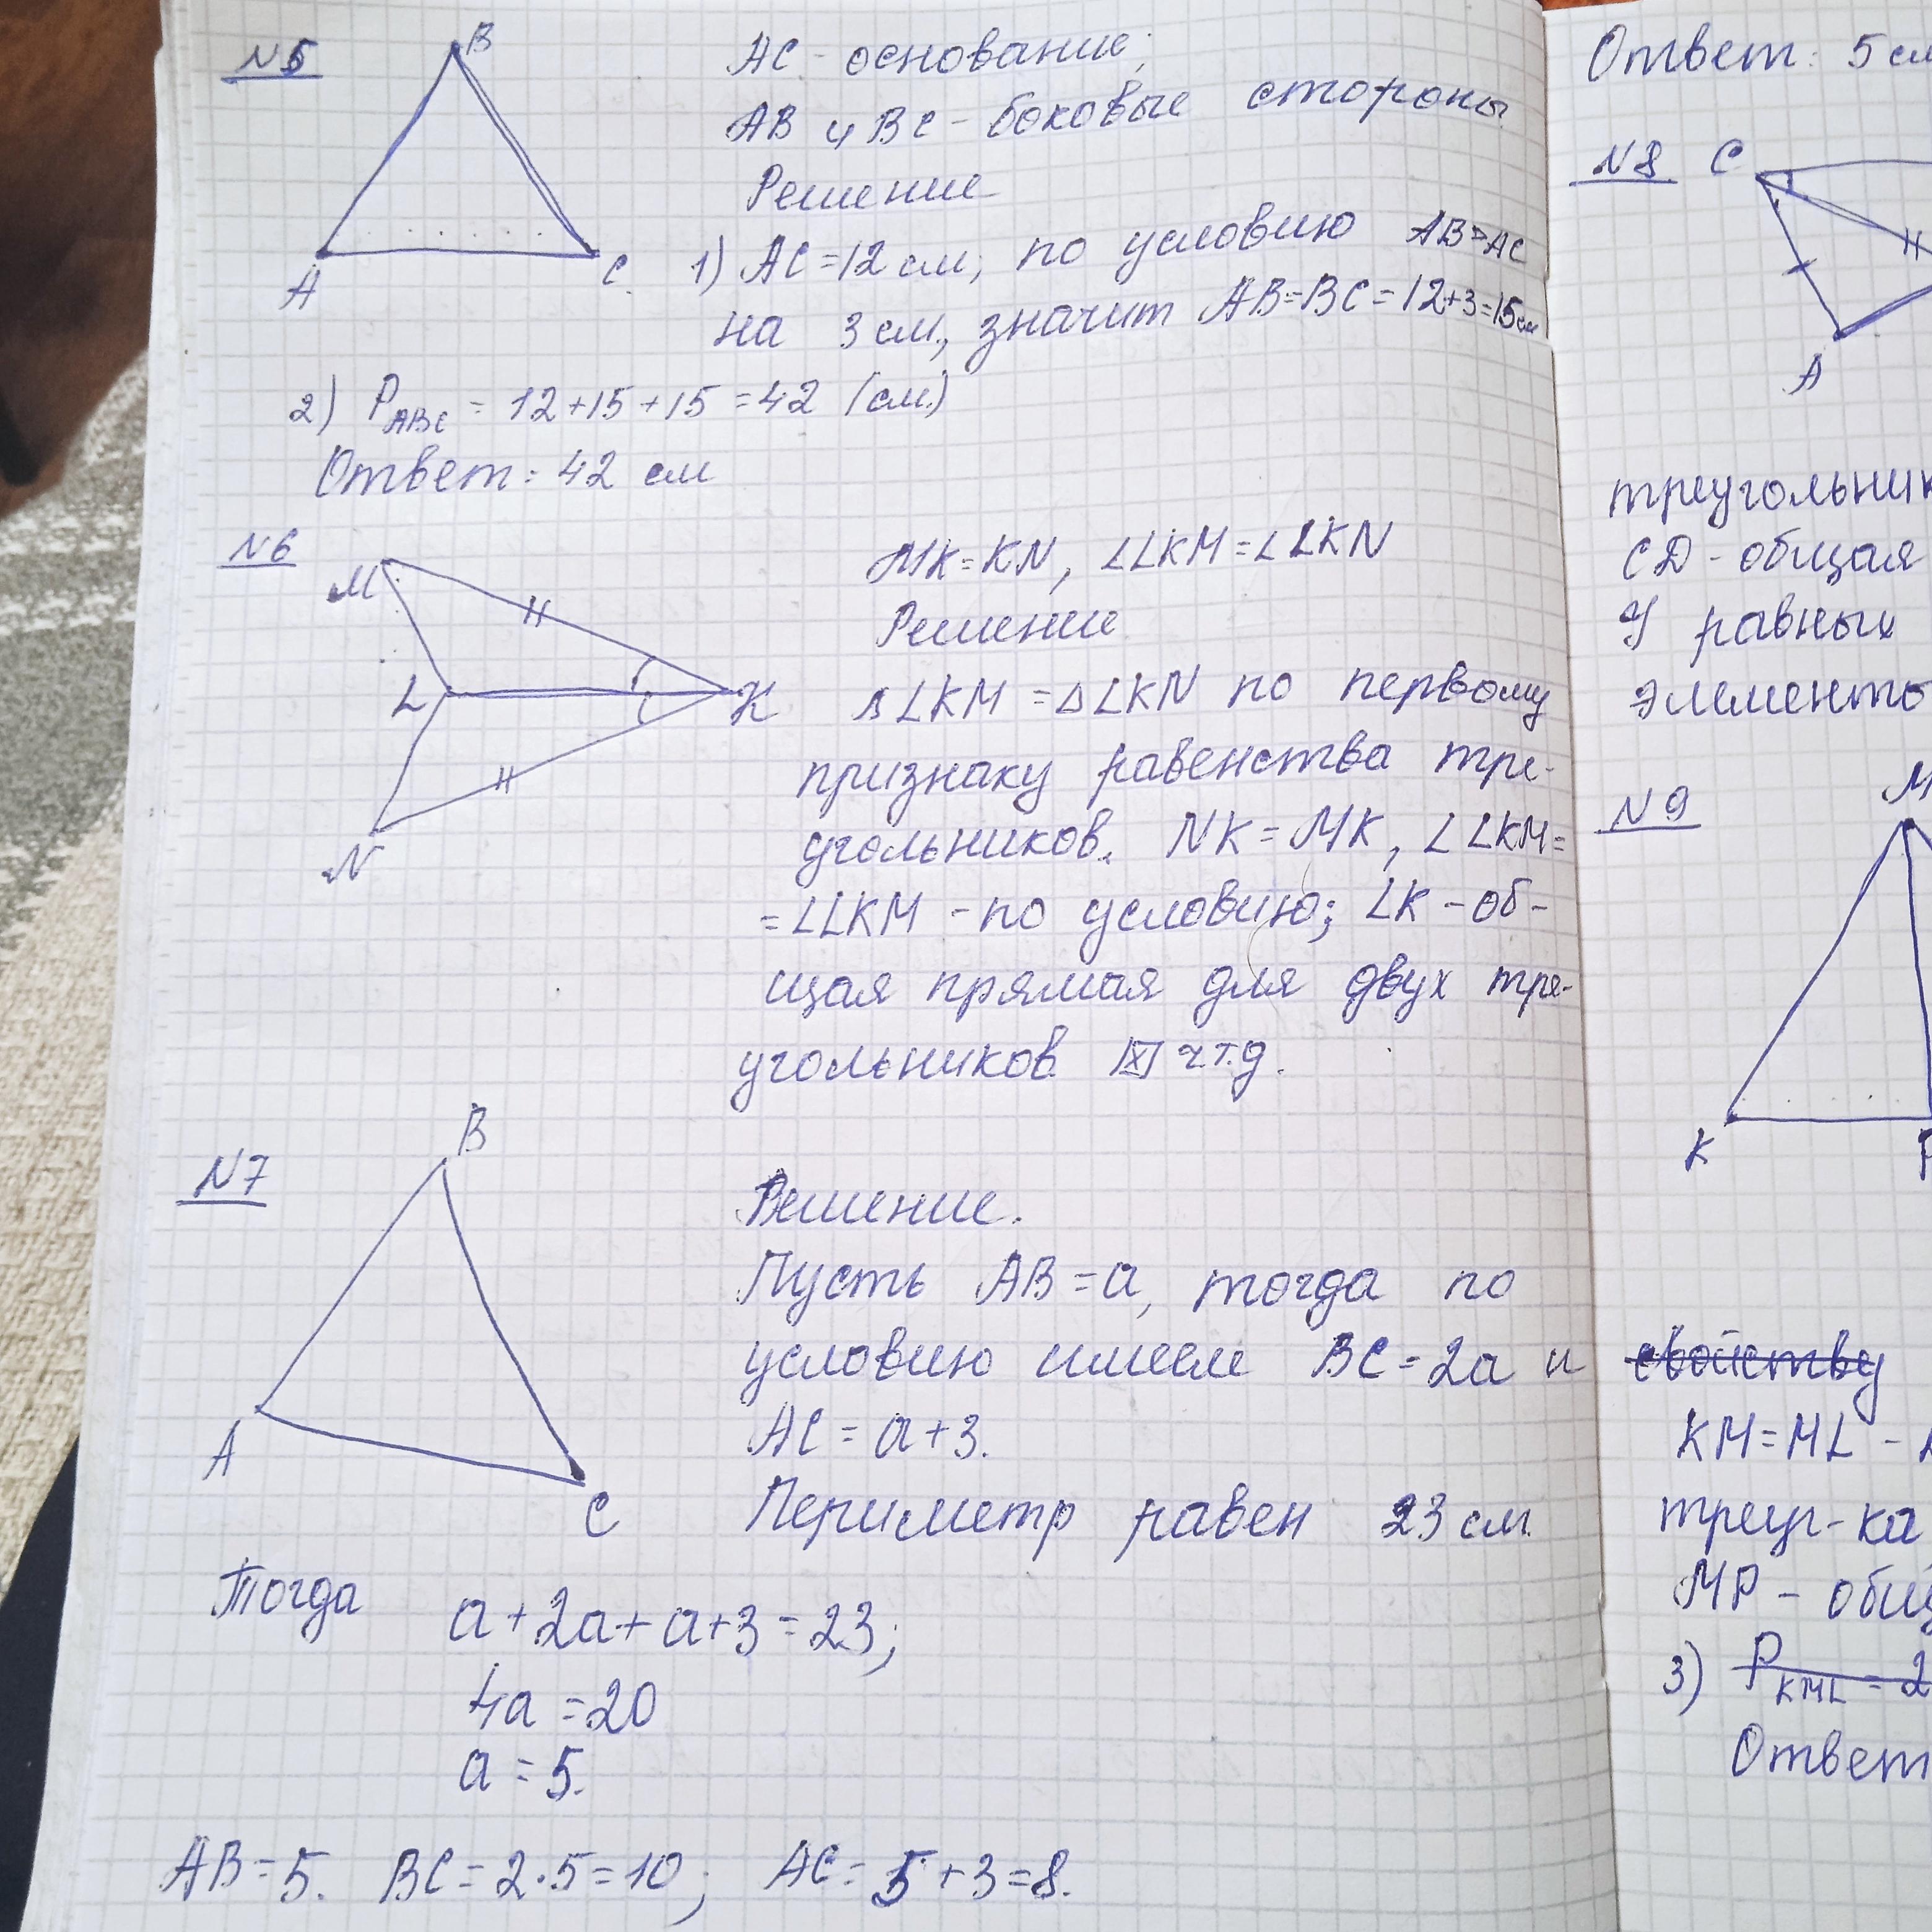 N5
B
A
C
АС - основание;
АВ и ВС - боковые стороны
Решение
1) АС = 12 см, по условию АВ > АС
на 3 см, значит АВ = ВС = 12+3=15см
2) P ABC = 12+15+15 = 42 (см.)
Ответ: 42 см
N6
M
L
K
N
MK = KN, ∠LKM = ∠LKN
Решение
△LKM = △LKN по первому
признаку равенства тре-
угольников. NK = MK, ∠LKM =
= ∠LKM - по условию; LK - об-
щая прямая для двух тре-
угольников ч.т.д.
N7
B
A
C
Решение.
Пусть АВ = a, тогда по
условию имеем ВС = 2a и
АС = a+3.
Периметр равен 23 см.
Тогда a+2a+a+3=23;
4a = 20
a = 5.
АВ = 5. ВС = 2·5=10; АС = 5+3=8.
Ответ: 5 см
N8 C
A
треугольник
CD - общая
У равных
элементо
N9
M
K
P
свойству
KM = ML -
треуг-ка
MP - общ
3) P KML = 2
Ответ